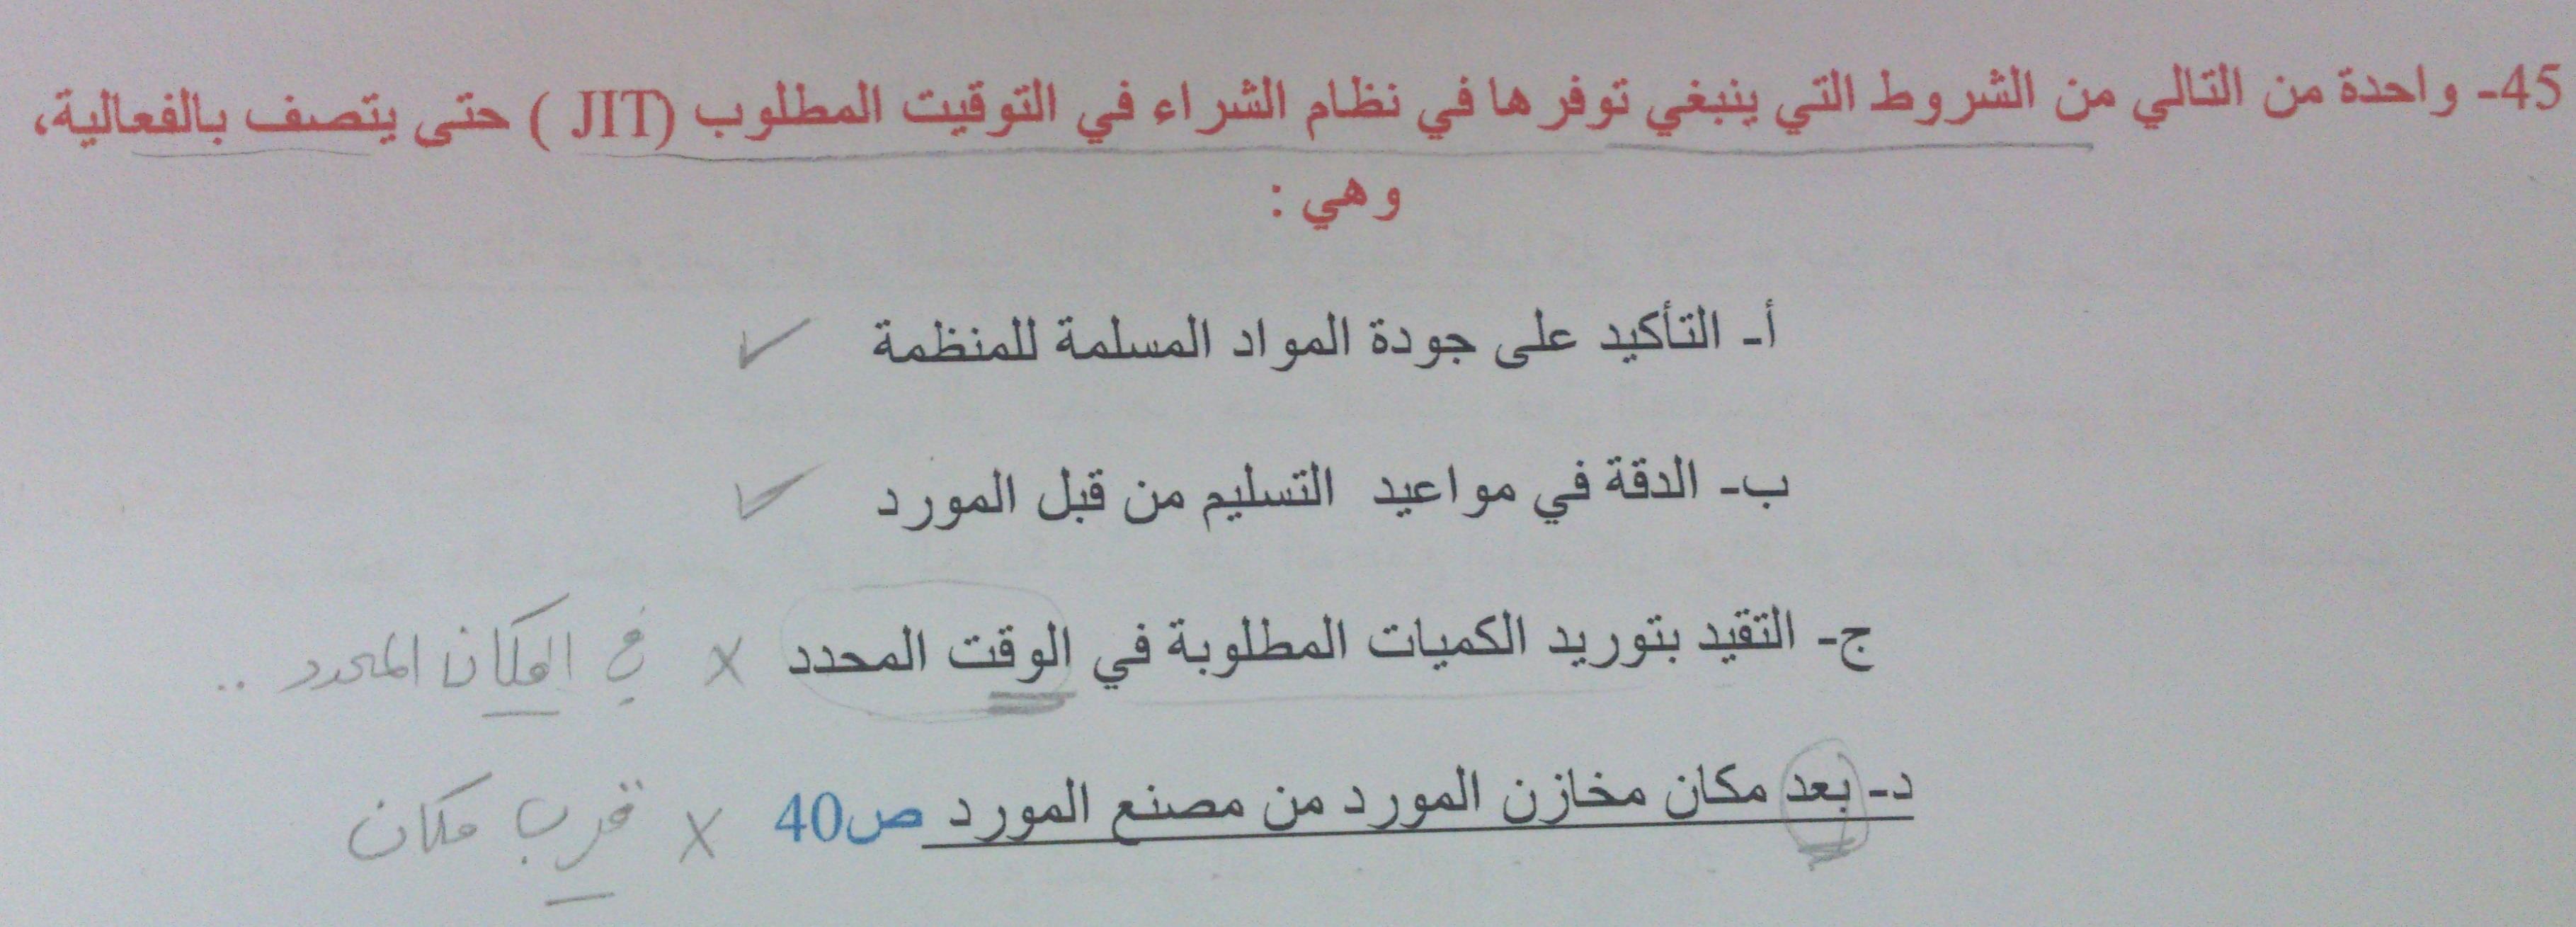 45- واحدة من التالي من الشروط التي ينبغي توفرها في نظام الشراء في التوقيت المطلوب (JIT ) حتى يتصف بالفعالية،
وهي :
أ- التأكيد على جودة المواد المسلمة للمنظمة ✓
ب- الدقة في مواعيد التسليم من قبل المورد ✓
ج- التقيد بتوريد الكميات المطلوبة في الوقت المحدد × في المكان المحدد ..
د- بعد مكان مخازن المورد من مصنع المورد ص40 × قرب مكان